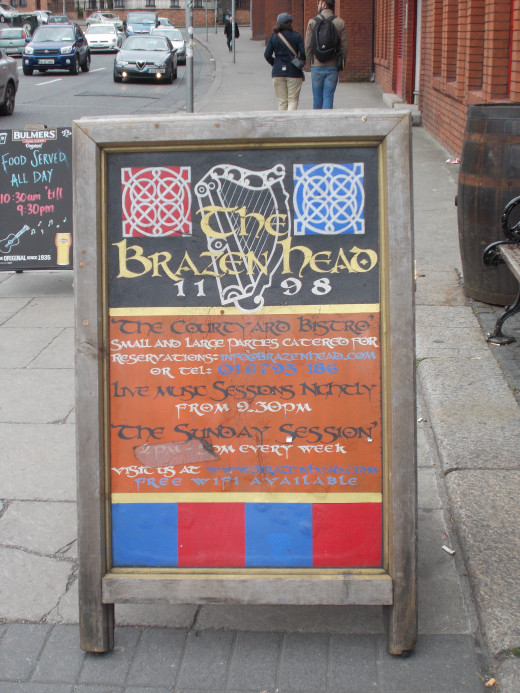 BULMERS
Original
FOOD SERVED
ALL DAY
10:30am 'till
9:30pm
ORIGINAL SINCE 1935
The
Brazen Head
11 98
'The Courtyard Bistro'
Small and Large Parties catered for
Reservations: info@brazenhead.com
or tel: 016793 186
Live Music Sessions Nightly
from 9.30pm
'The Sunday Session'
pm every week
visit us at www.brazenhead.com
free wifi available